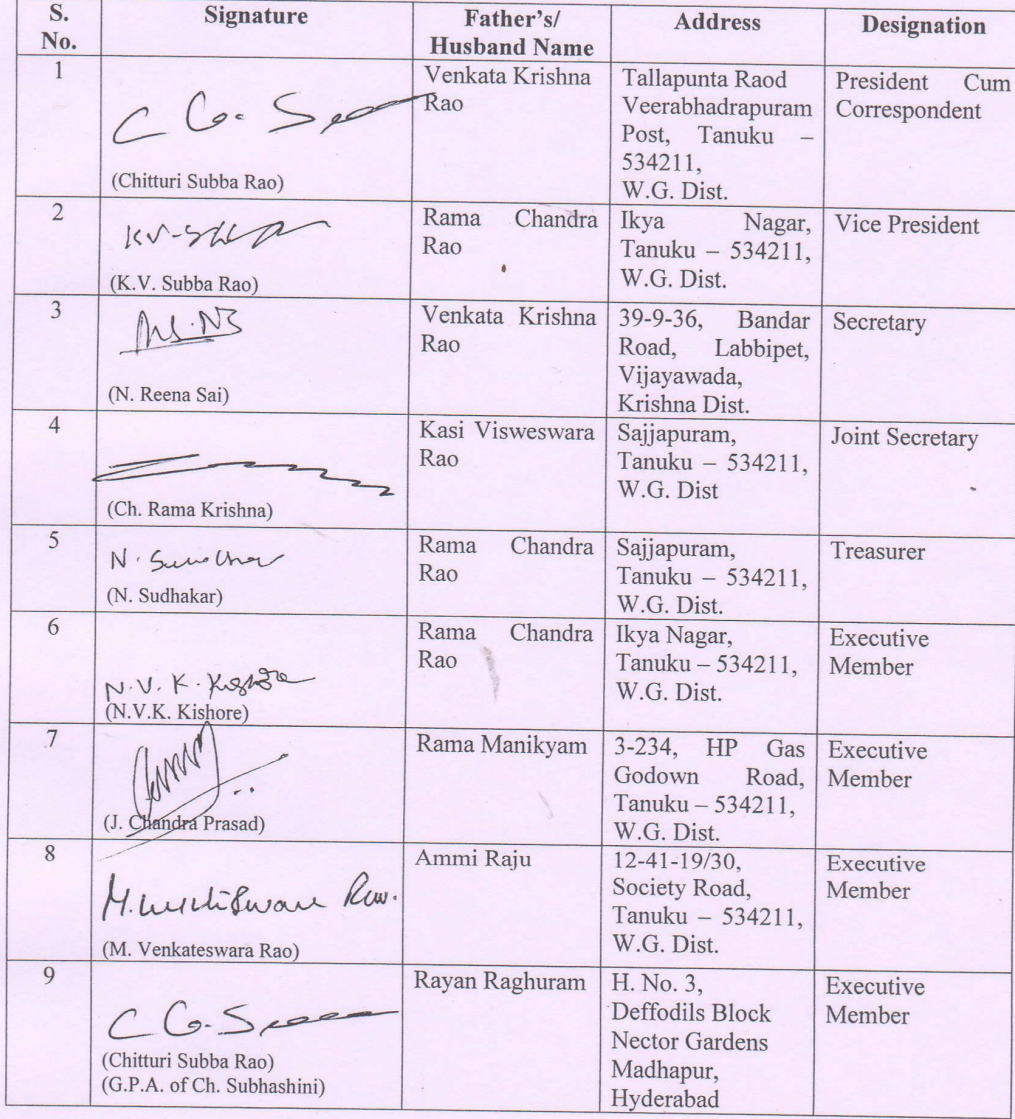 S. No. Signature Father's/ Husband Name Address Designation
1
C G. S
(Chitturi Subba Rao)
Venkata Krishna
Rao
Tallapunta Raod
Veerabhadrapuram
Post, Tanuku –
534211,
W.G. Dist.
President Cum
Correspondent
2
K.V.
(K.V. Subba Rao)
Rama Chandra
Rao
Ikya Nagar,
Tanuku – 534211,
W.G. Dist.
Vice President
3
(N. Reena Sai)
Venkata Krishna
Rao
39-9-36, Bandar
Road, Labbipet,
Vijayawada,
Krishna Dist.
Secretary
4
(Ch. Rama Krishna)
Kasi Visweswara
Rao
Sajjapuram,
Tanuku – 534211,
W.G. Dist
Joint Secretary
5
N.
(N. Sudhakar)
Rama Chandra
Rao
Sajjapuram,
Tanuku – 534211,
W.G. Dist.
Treasurer
6
N.V.K. Kishore
(N.V.K. Kishore)
Rama Chandra
Rao
Ikya Nagar,
Tanuku – 534211,
W.G. Dist.
Executive
Member
7
(J. Chandra Prasad)
Rama Manikyam
3-234, HP Gas
Godown Road,
Tanuku – 534211,
W.G. Dist.
Executive
Member
8
M. Rao.
(M. Venkateswara Rao)
Ammi Raju
12-41-19/30,
Society Road,
Tanuku – 534211,
W.G. Dist.
Executive
Member
9
C G. S
(Chitturi Subba Rao)
(G.P.A. of Ch. Subhashini)
Rayan Raghuram
H. No. 3,
Deffodils Block
Nector Gardens
Madhapur,
Hyderabad
Executive
Member